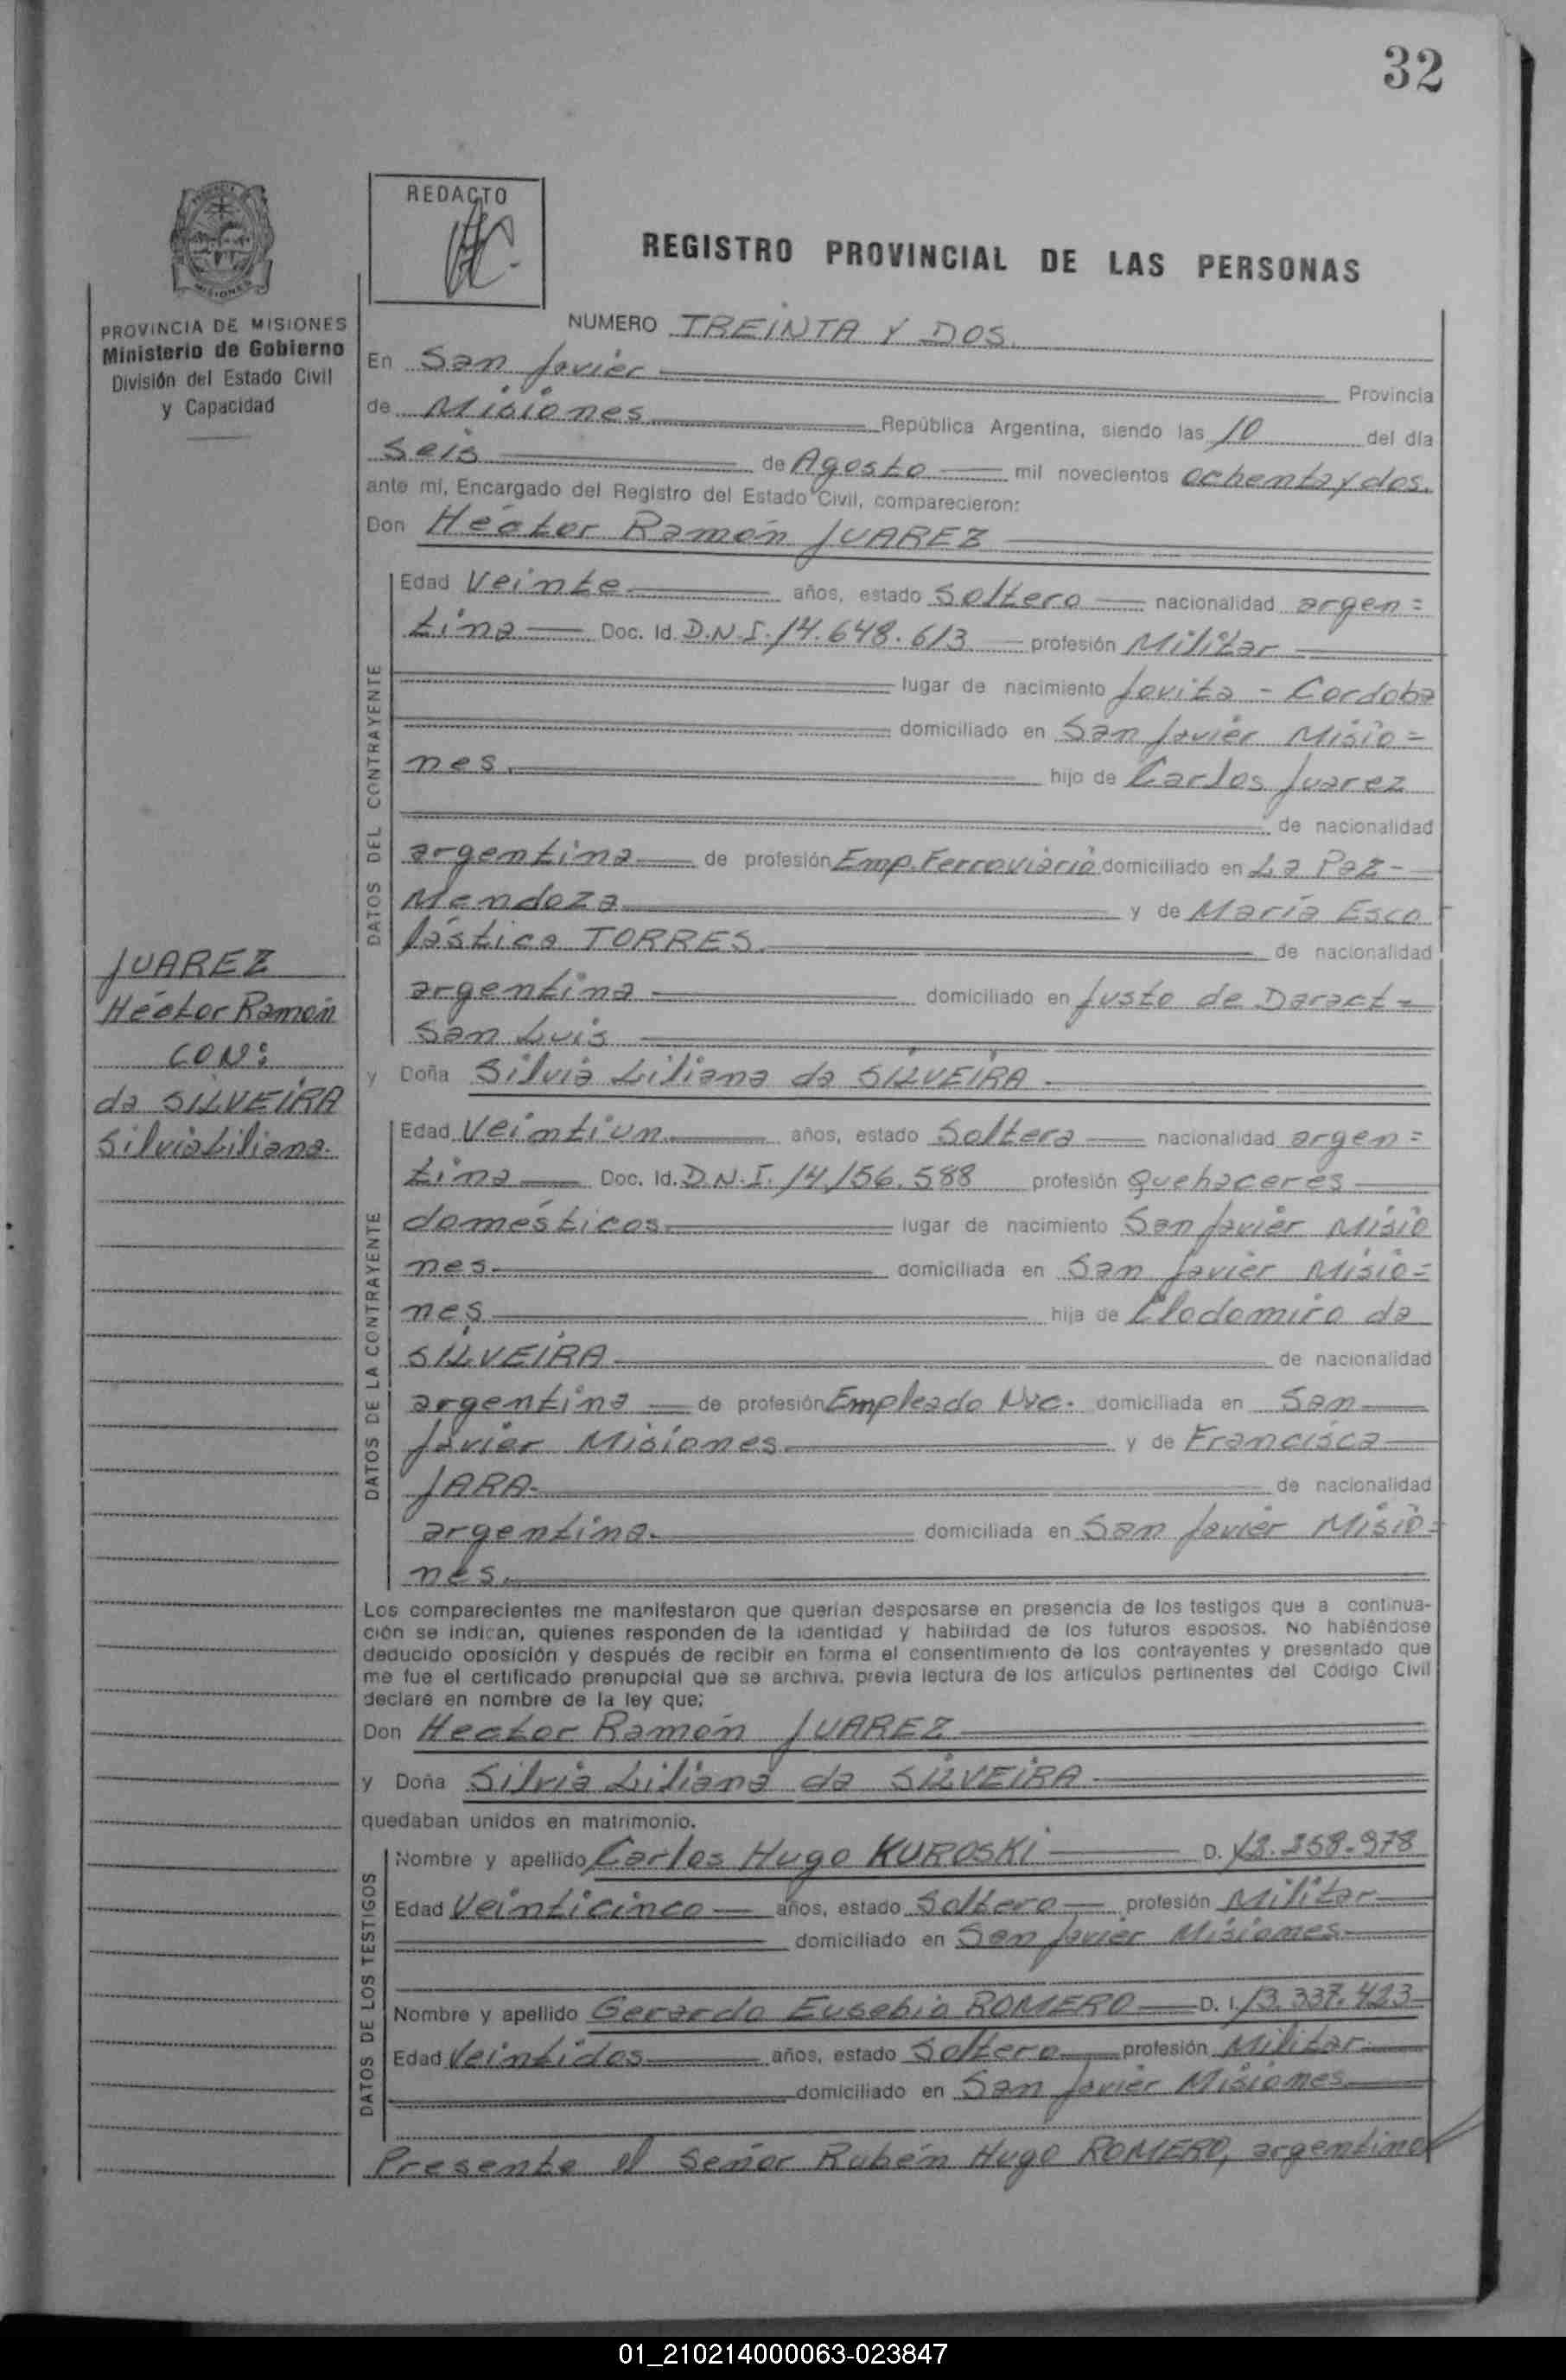 32
REDACTO
REGISTRO PROVINCIAL DE LAS PERSONAS
PROVINCIA DE MISIONES
Ministerio de Gobierno
División del Estado Civil
y Capacidad
NUMERO TREINTA Y DOS
En San Javier Provincia
de Misiones República Argentina, siendo las 10 del día
seis de Agosto mil novecientos ochenta y dos.
ante mí, Encargado del Registro del Estado Civil, comparecieron:
Don Héctor Ramón JUAREZ
DATOS DEL CONTRAYENTE
Edad Veinte años, estado Soltero nacionalidad argen=
tina Doc. Id. D.N.I. 14.648.613 profesión Militar
lugar de nacimiento Jovita - Cordoba
domiciliado en San Javier Misio=
nes. hijo de Carlos Juarez
de nacionalidad
argentina de profesión Emp. Ferroviario domiciliado en La Paz -
Mendoza y de María Esco
lástica TORRES. de nacionalidad
argentina domiciliado en Justo de Daract -
San Luis
JUAREZ
Héctor Ramón
CON:
da SILVEIRA
Silvia Liliana.
y Doña Silvia Liliana da SILVEIRA.
DATOS DE LA CONTRAYENTE
Edad Veintiun años, estado Soltera nacionalidad argen=
tina Doc. Id. D.N.I. 14.156.588 profesión Quehaceres
domésticos. lugar de nacimiento San Javier Misio
nes. domiciliada en San Javier Misio=
nes hija de Clodomiro da
SILVEIRA de nacionalidad
argentina de profesión Empleado Nac. domiciliada en San
Javier Misiones. y de Francisca
JARA. de nacionalidad
argentina. domiciliada en San Javier Misio=
nes.
Los comparecientes me manifestaron que querían desposarse en presencia de los testigos que a continua-
ción se indican, quienes responden de la identidad y habilidad de los futuros esposos. No habiéndose
deducido oposición y después de recibir en forma el consentimiento de los contrayentes y presentado que
me fue el certificado prenupcial que se archiva, previa lectura de los artículos pertinentes del Código Civil
declaré en nombre de la ley que;
Don Hector Ramón JUAREZ
y Doña Silvia Liliana da SILVEIRA
quedaban unidos en matrimonio.
DATOS DE LOS TESTIGOS
Nombre y apellido Carlos Hugo KUROSKI D. 12.258.978
Edad Veinticinco años, estado Soltero profesión Militar
domiciliado en San Javier Misiones
Nombre y apellido Gerardo Eusebio ROMERO D. I. 13.337.423
Edad Veintidos años, estado Soltero profesión Militar
domiciliado en San Javier Misiones
Presente el Señor Rubén Hugo ROMERO, argentino
01_210214000063-023847